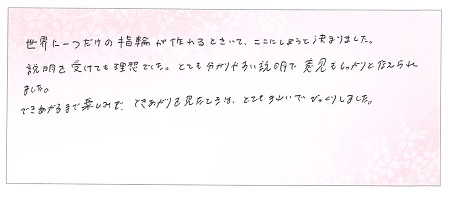 世界に一つだけの指輪が作れるときいて、ここにしようと決まりました。
説明を受けても理想でした。とても分かりやすい説明で意見もしっかりと伝えられ
ました。
できあがるまで楽しみで、できあがりを見たときは、とてもキレイでびっくりしました。